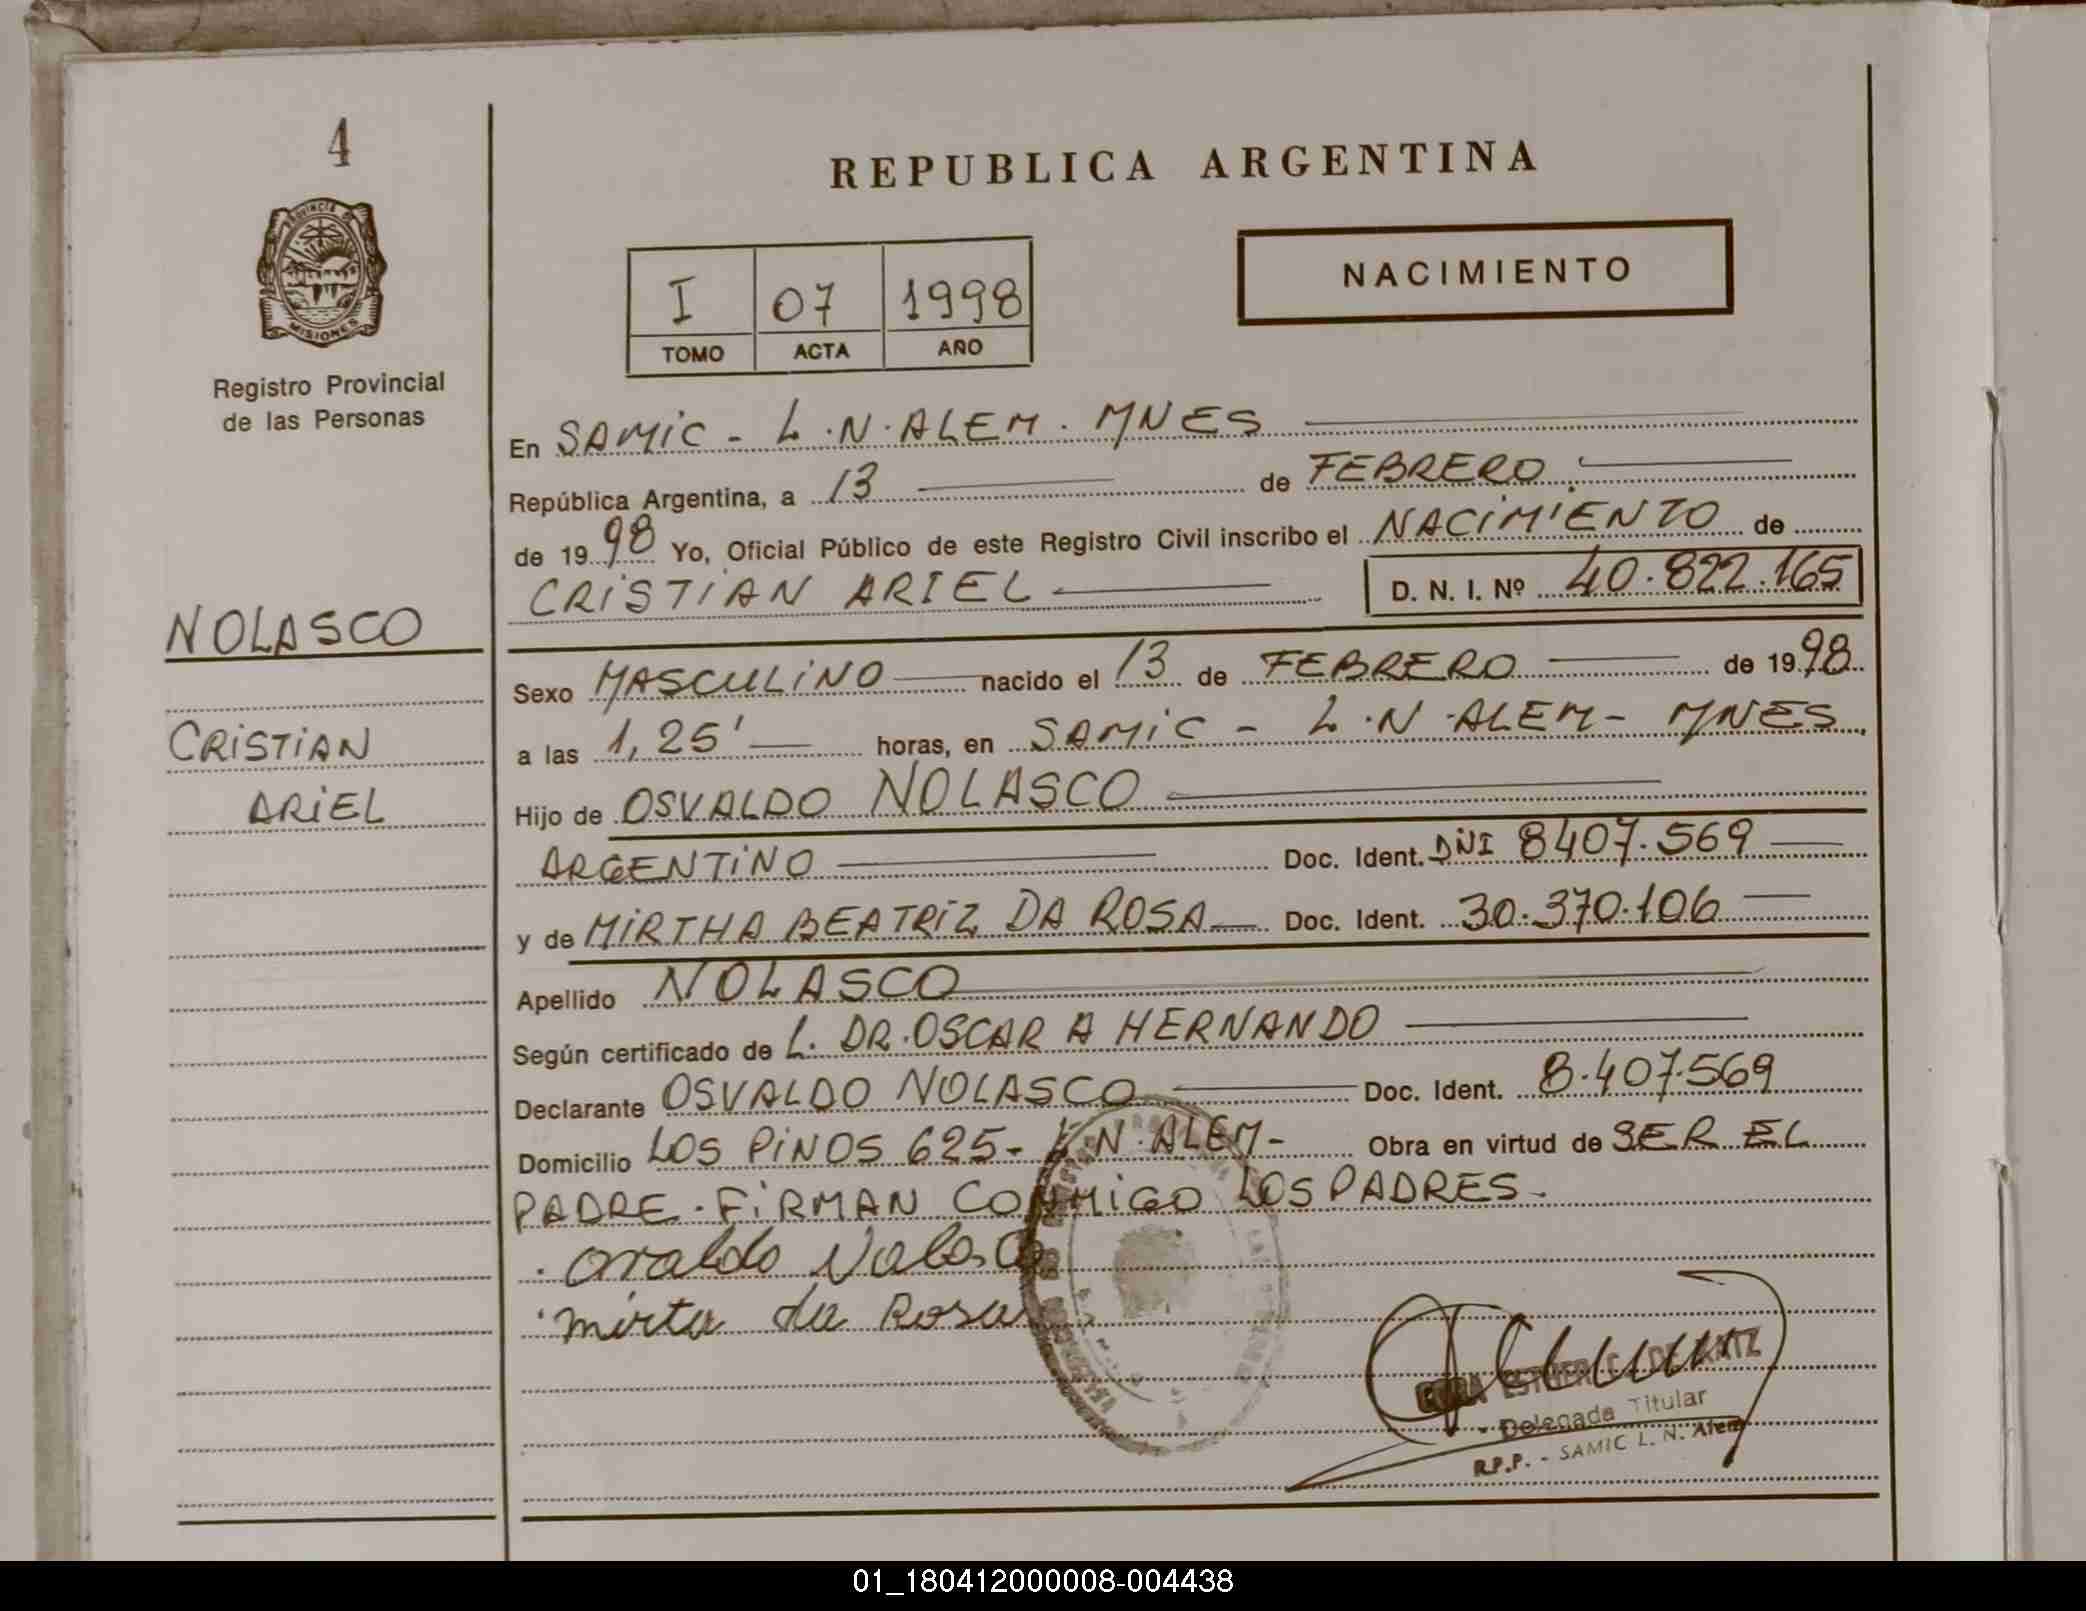 4
PROVINCIA DE
MISIONES
Registro Provincial
de las Personas
NOLASCO
CRISTIAN
ARIEL
REPUBLICA ARGENTINA
I 07 1998
TOMO ACTA AÑO
NACIMIENTO
En SAMIC - L.N.ALEM. MNES
República Argentina, a 13 de FEBRERO
de 1998 Yo, Oficial Público de este Registro Civil inscribo el NACIMIENTO de
CRISTIAN ARIEL D. N. I. Nº 40.822.165
Sexo MASCULINO nacido el 13 de FEBRERO de 1998
a las 1,25' horas, en SAMIC - L.N.ALEM - MNES
Hijo de OSVALDO NOLASCO
ARGENTINO Doc. Ident. DNI 8407.569
y de MIRTHA BEATRIZ DA ROSA Doc. Ident. 30.370.106
Apellido NOLASCO
Según certificado de L. DR. OSCAR A HERNANDO
Declarante OSVALDO NOLASCO Doc. Ident. 8.407.569
Domicilio LOS PINOS 625- L.N.ALEM- Obra en virtud de SER EL
PADRE. FIRMAN CONMIGO LOS PADRES.
Osvaldo Nolasco
mirta da Rosa
ESTHER C. DE KATZ
Delegada Titular
R.P.P. - SAMIC L. N. Alem
01_180412000008-004438